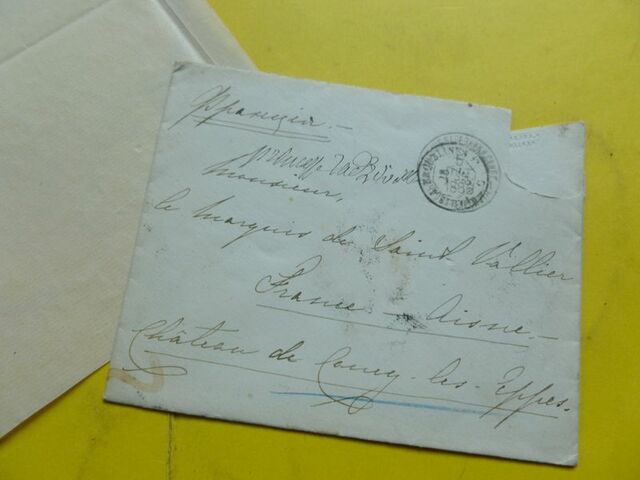 Франція. —
Monsieur,
le Marquis de Saint Vallier
France - Aisne. —
Château de Coucy-les-Eppes.